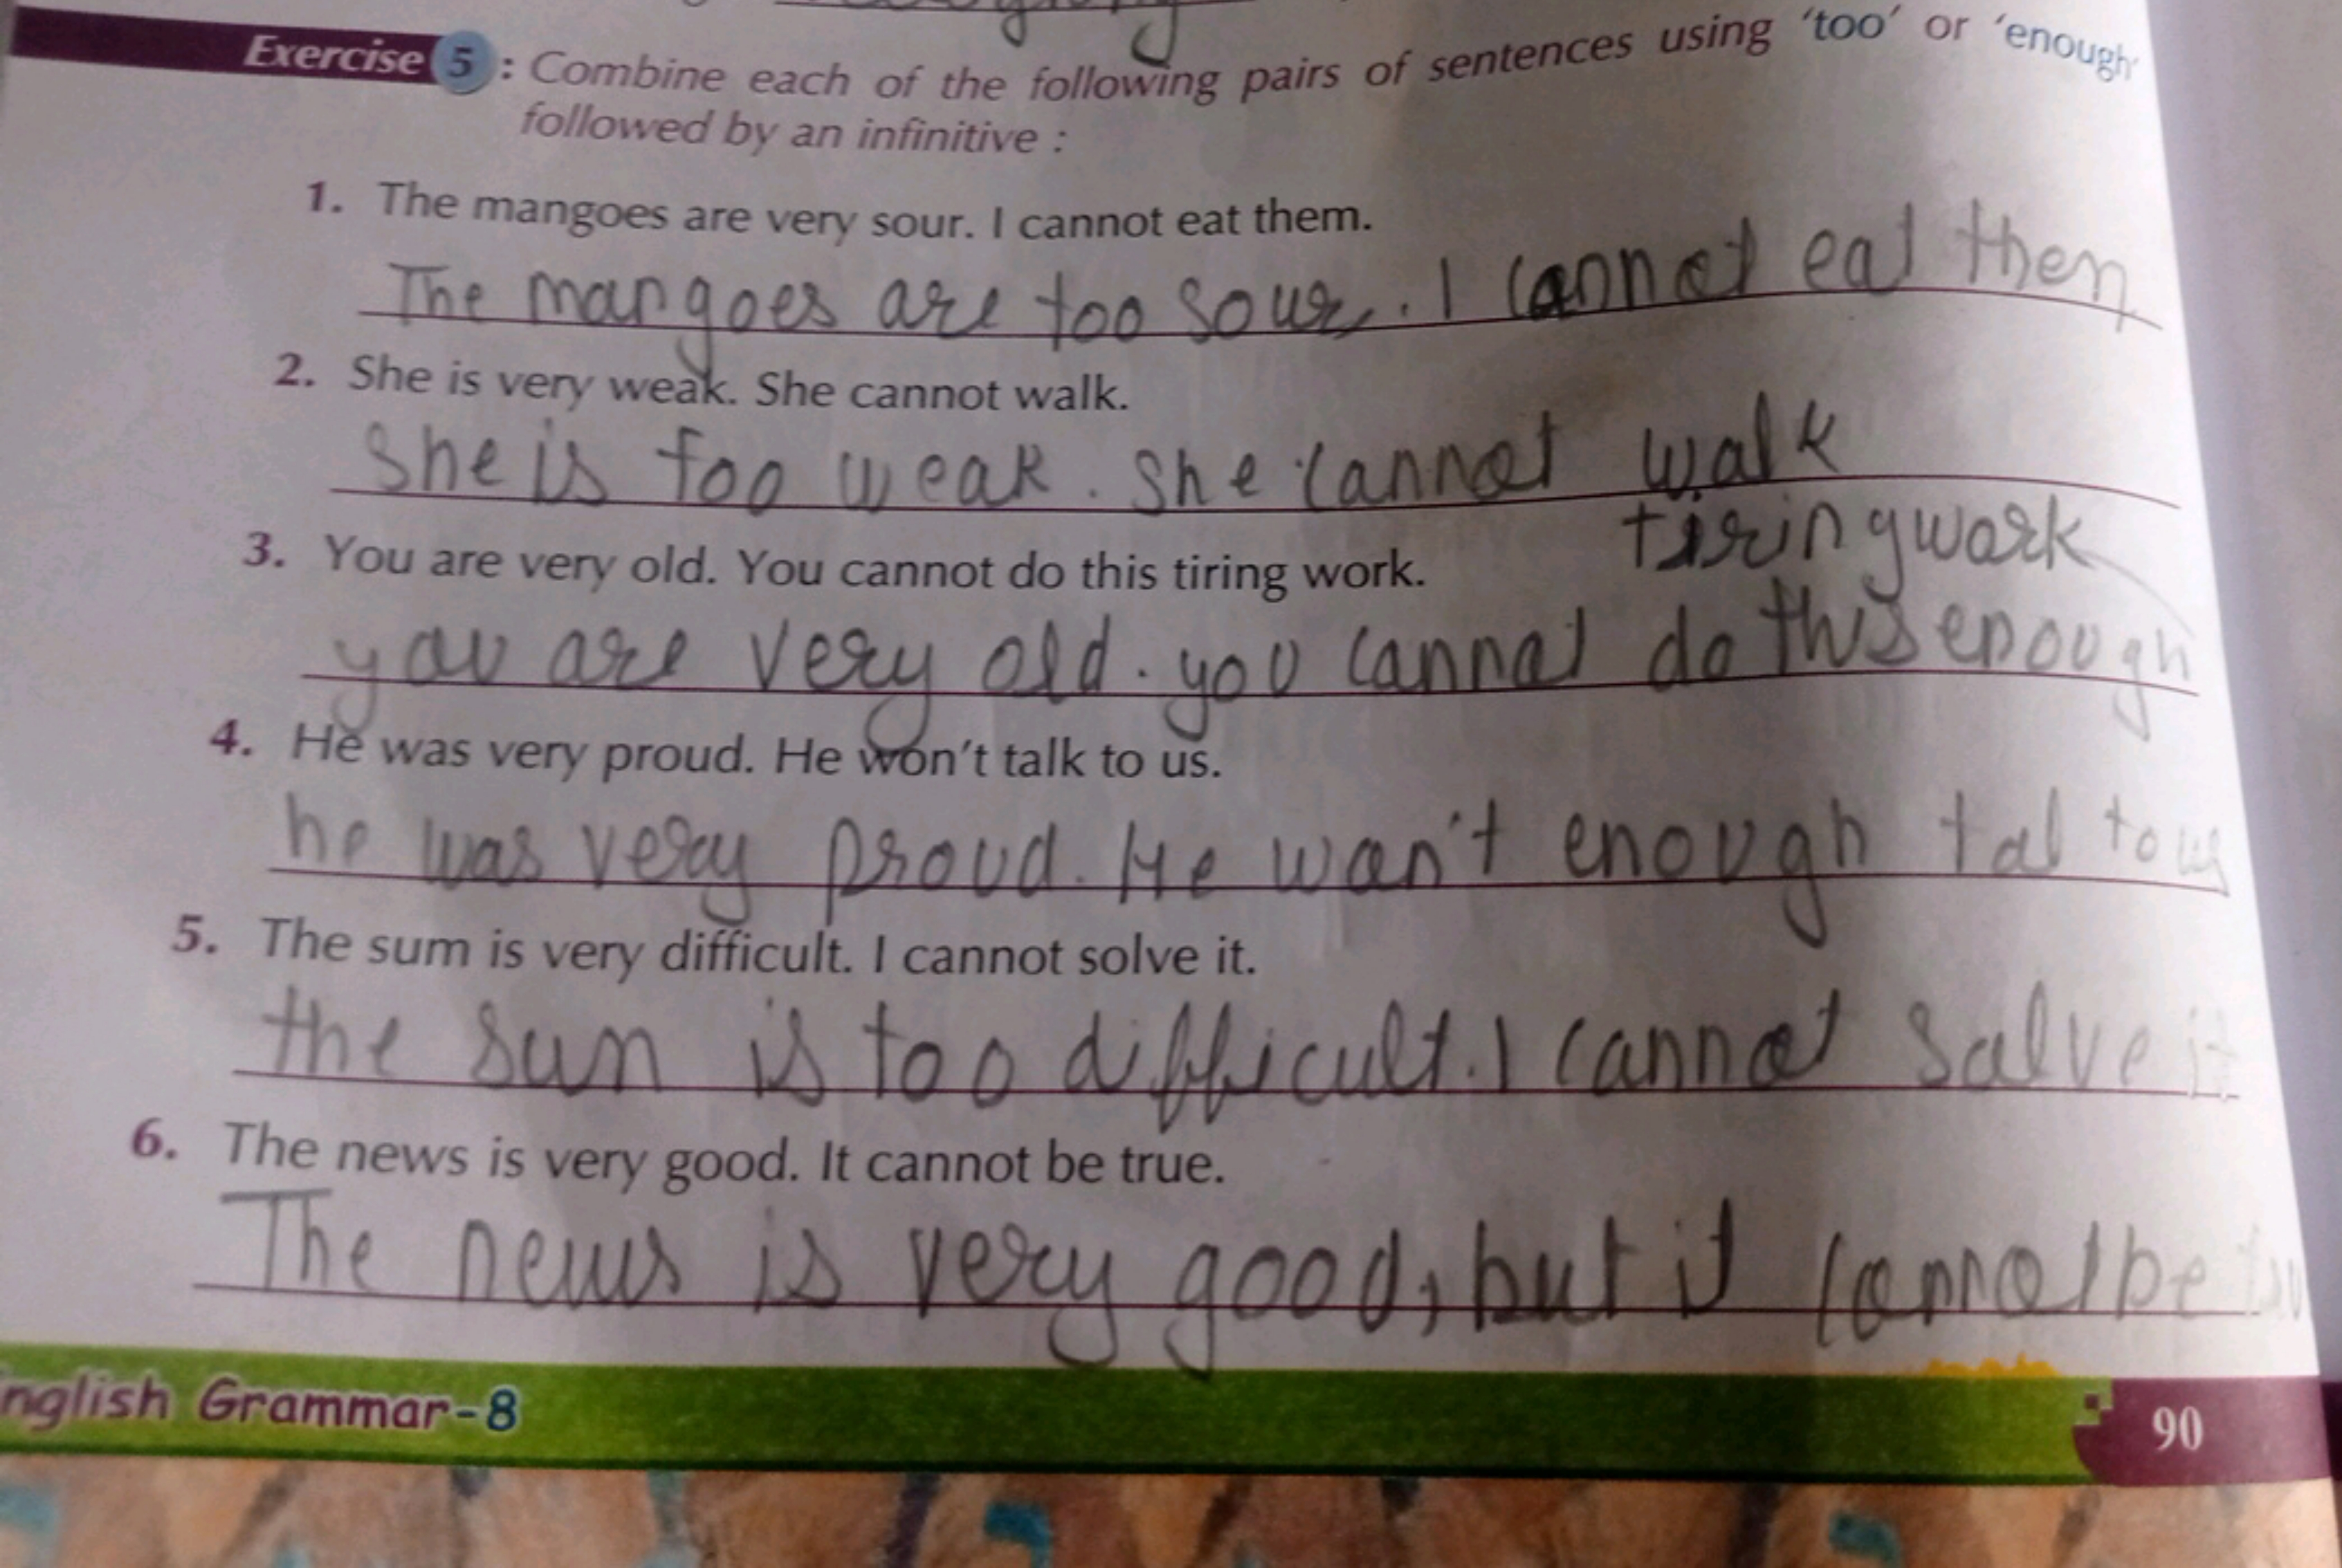 Exercise 5 : Combine each of the following pairs of sentences using 'too' or 'enough'
followed by an infinitive :
1. The mangoes are very sour. I cannot eat them.
The mangoes are too sour. I cannot eat them
2. She is very weak. She cannot walk.
She is too weak. She cannot walk
3. You are very old. You cannot do this tiring work.
tiring work
you are very old. you cannot do this enough
4. He was very proud. He won't talk to us.
he was very proud. He wan't enough tal to us
5. The sum is very difficult. I cannot solve it.
the sun is too difficult. I cannot salve it
6. The news is very good. It cannot be true.
The news is very good, but it cannot be
nglish Grammar-8
90